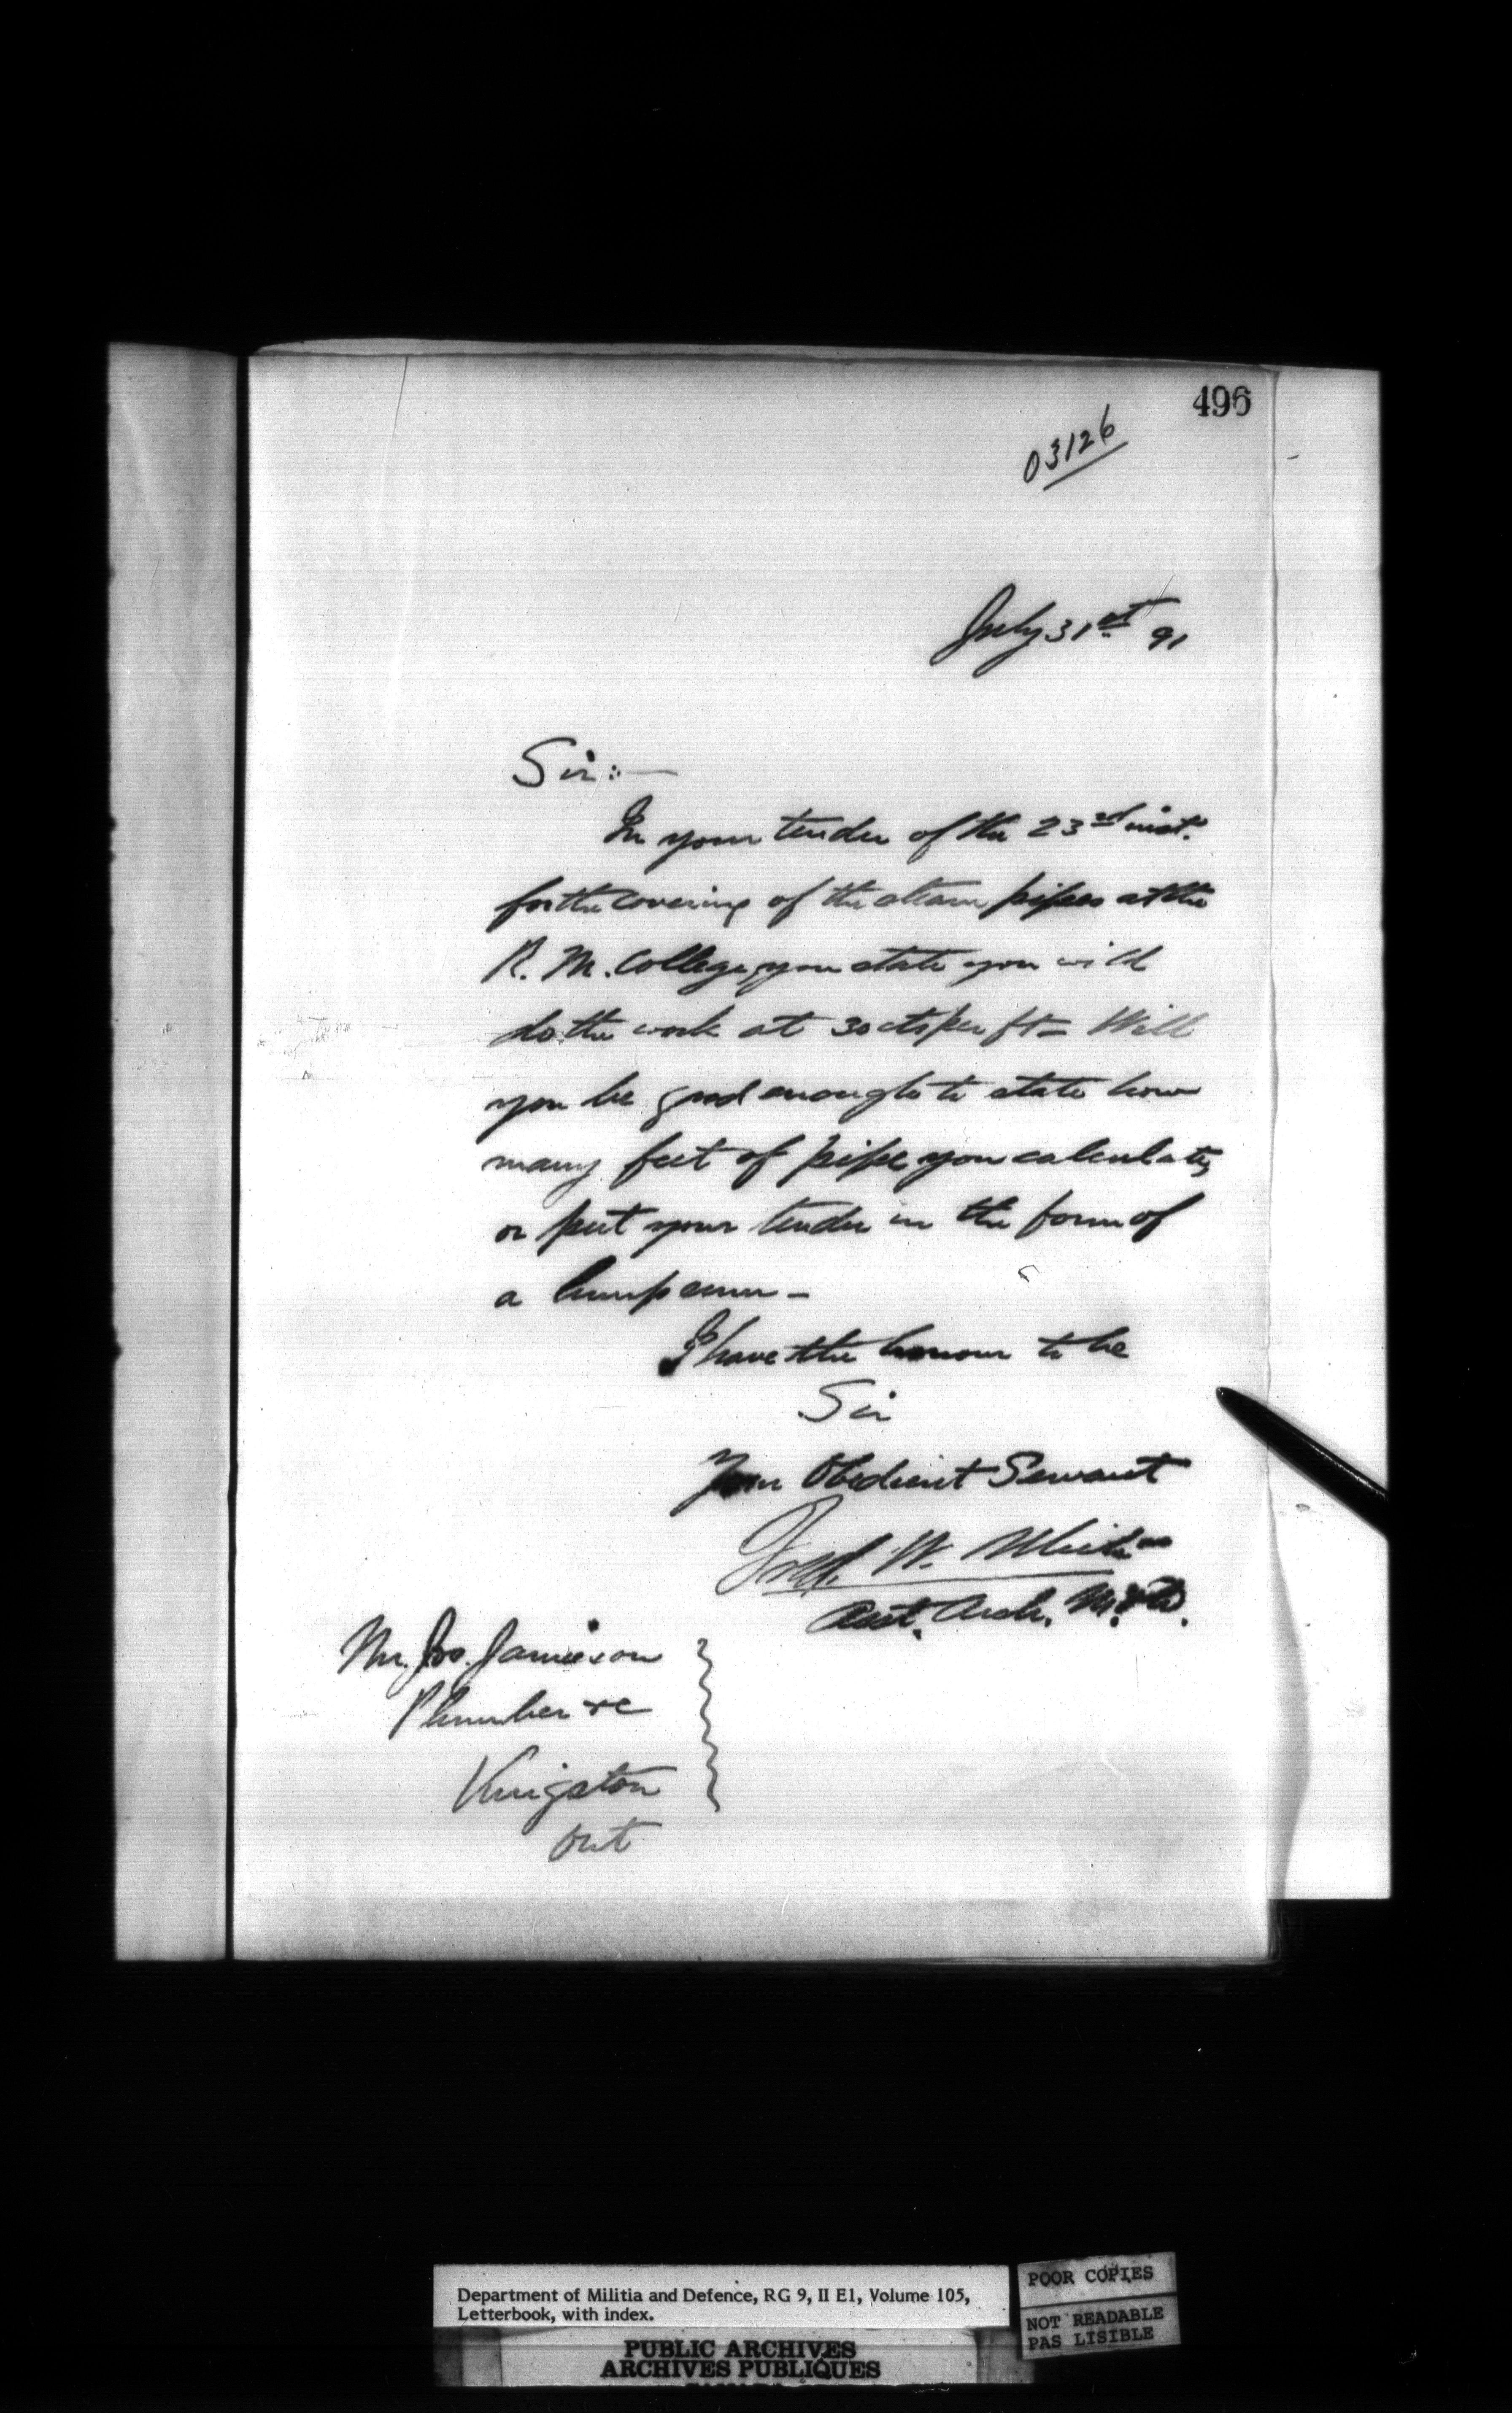 496
03126
July 31st 91
Sir:—
In your tender of the 23rd inst.
for the covering of the steam pipes at the
R. M. College, you state you will
do the work at 30 cts per ft = Will
you be good enough to state how
many feet of pipe you calculate,
or put your tender in the form of
a lump sum –
I have the honour to be
Sir
Your Obedient Servant
Fred. W. White
Asst. Arch. M. & D.
Mr. Jos. Jamieson
Plumber &c
Kingston
Ont
Department of Militia and Defence, RG 9, II E1, Volume 105,
Letterbook, with index.
POOR COPIES
NOT READABLE
PAS LISIBLE
PUBLIC ARCHIVES
ARCHIVES PUBLIQUES